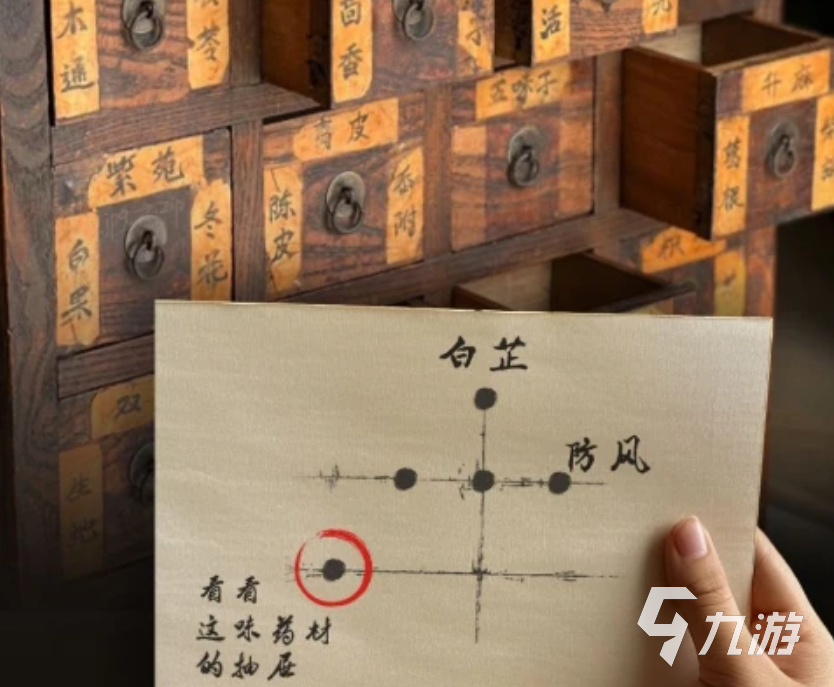 木通
茴香
活
紫苑
白果
冬花
青皮
陈皮
香附
五味子
升麻
葛根
双
生地
白芷
防风
看看
这味药材
的抽屉
九游